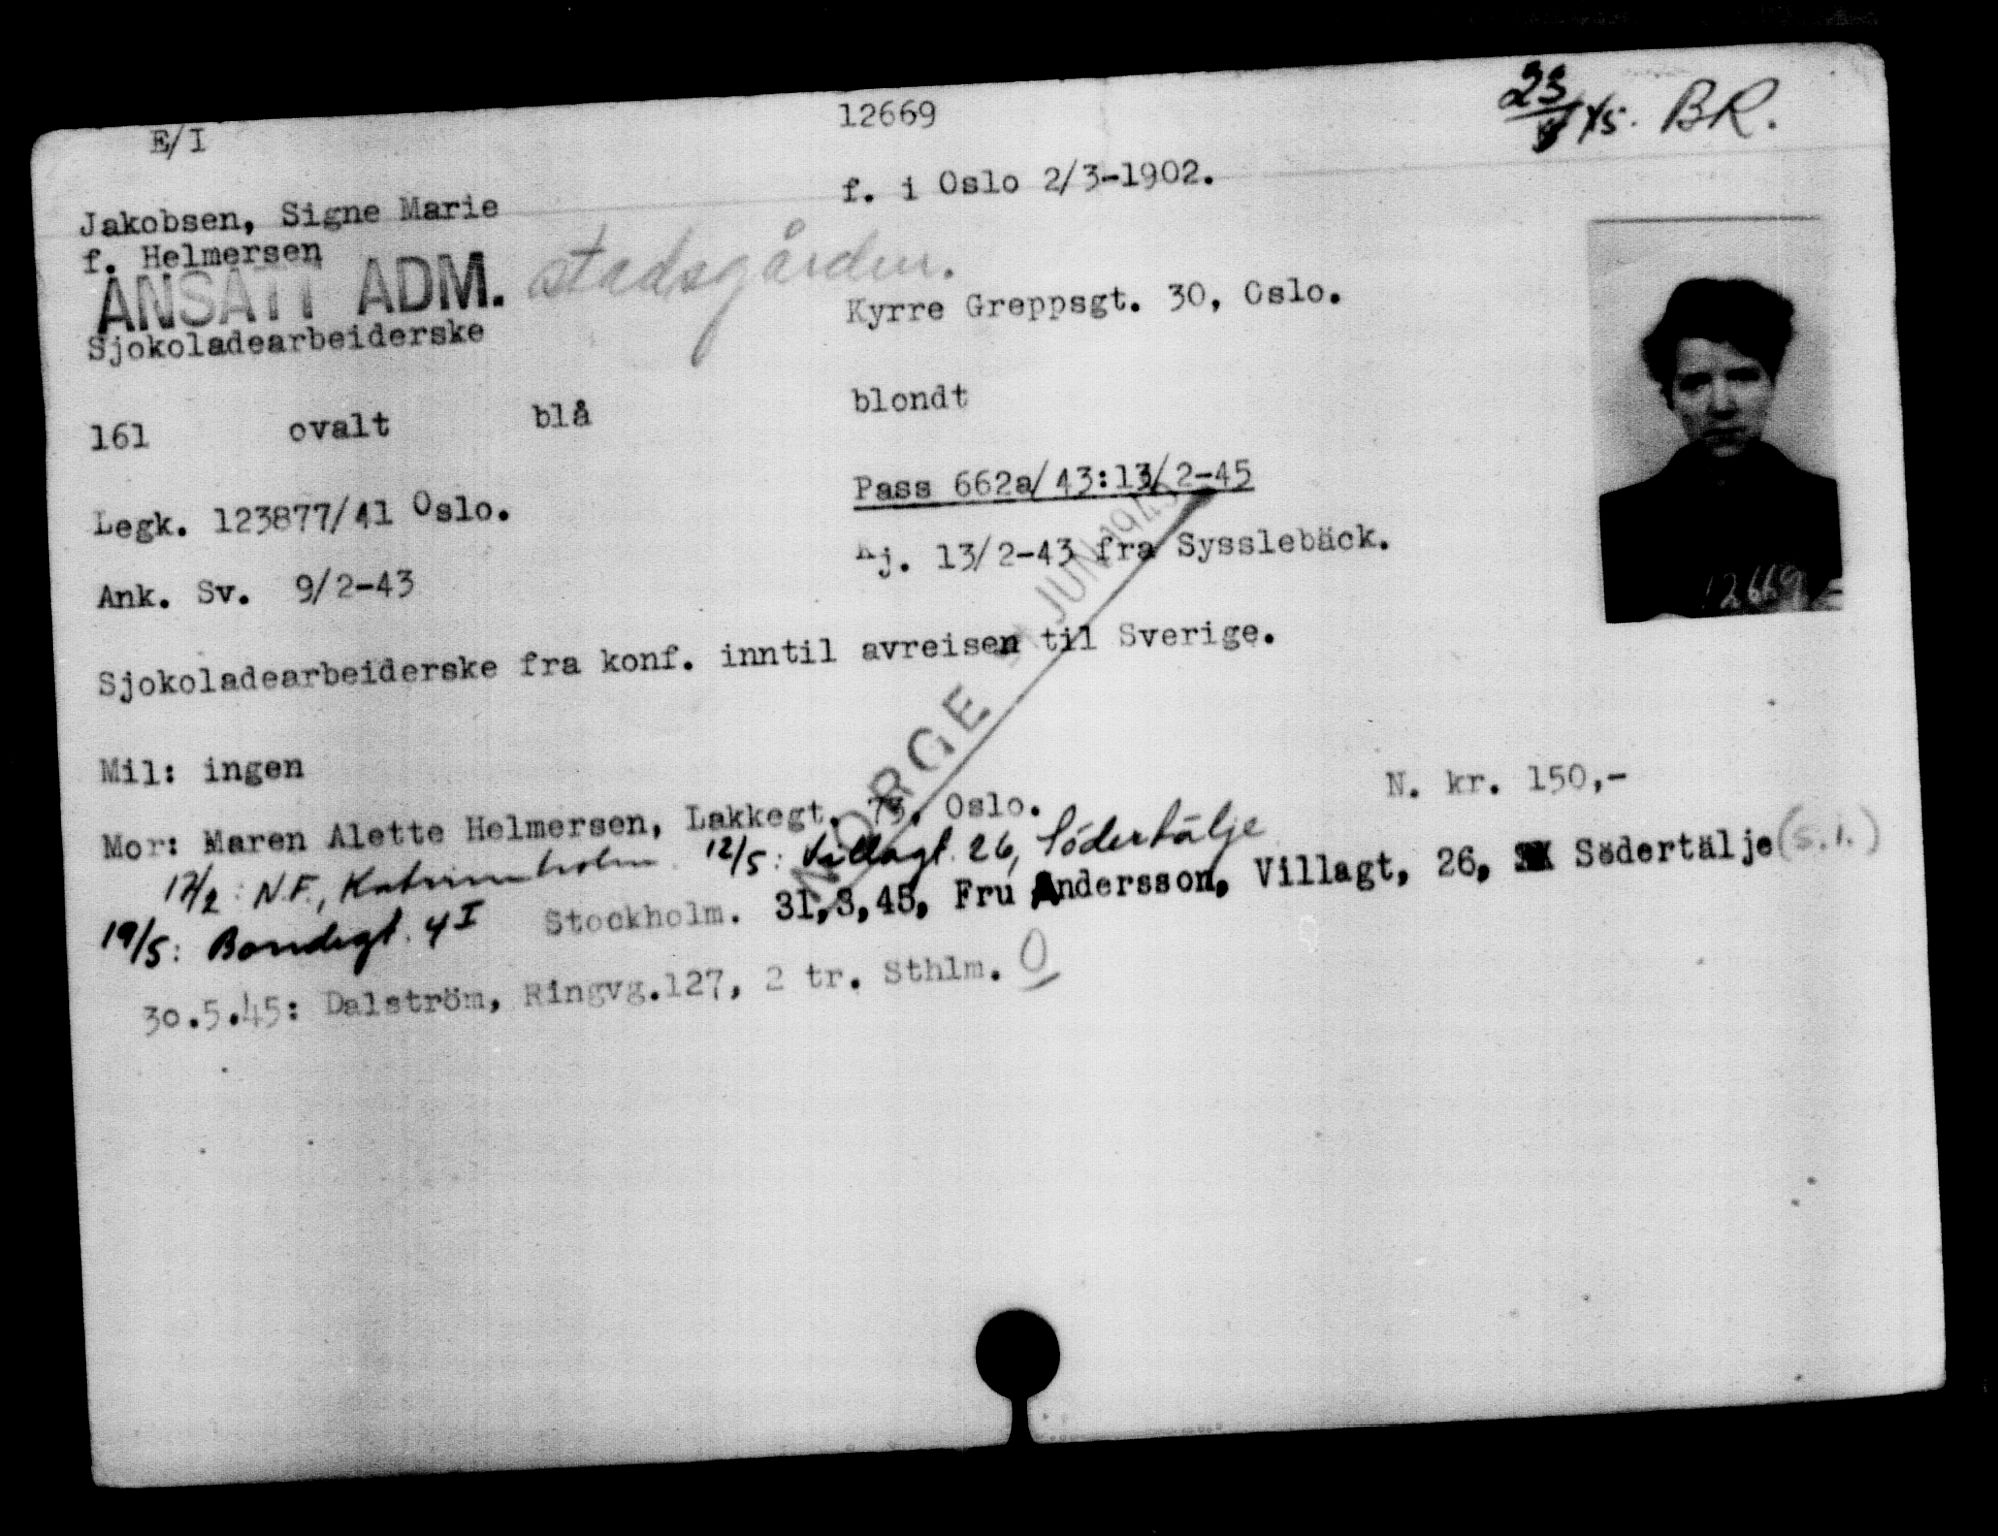 E/I
12669
BR.
Jakobsen, Signe Marie
f. i Oslo 2/3-1902.
f. Helmersen
ANSATT ADM. stadsgården.
Kyrre Greppsgt. 30, Oslo.
Sjokoladearbeiderske
161 ovalt blå blondt
Legk. 123877/41 Oslo.
Pass 662a/43:13/2-45
Ank. Sv. 9/2-43
Kj. 13/2-43 fra Sysslebäck.
Sjokoladearbeiderske fra konf. inntil avreisen til Sverige.
NORGE JUNI 1945
Mil: ingen
N. kr. 150,-
Mor: Maren Alette Helmersen, Lakkegt. 73, Oslo.
17/2: N.F., Katrineholm 12/5: Villagt. 26, Södertälje
19/5: Bondegt. 4 I Stockholm. 31,3,45, Fru Andersson, Villagt, 26, Södertälje (s.i.)
30.5.45: Dalström, Ringvg.127, 2 tr. Sthlm. O
12669